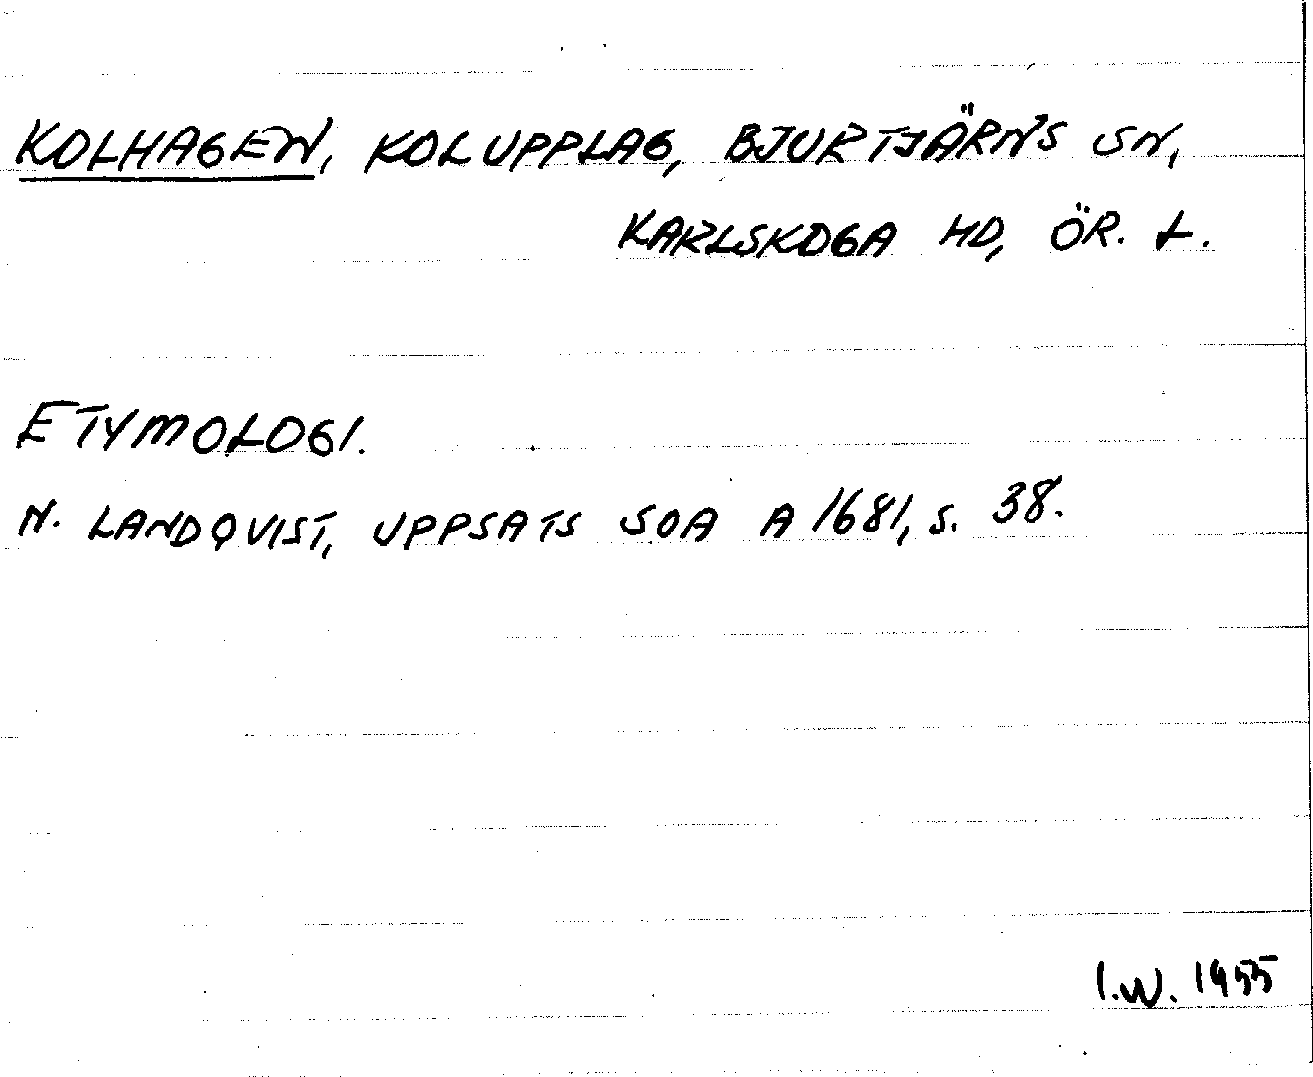 KOLHAGEN, KOLUPPLAG, BJURTJÄRNS SN,
KARLSKOGA HD, ÖR. L.
ETYMOLOGI.
N. LANDQVIST, UPPSATS SOA A 1681, S. 38.
I.W. 1955